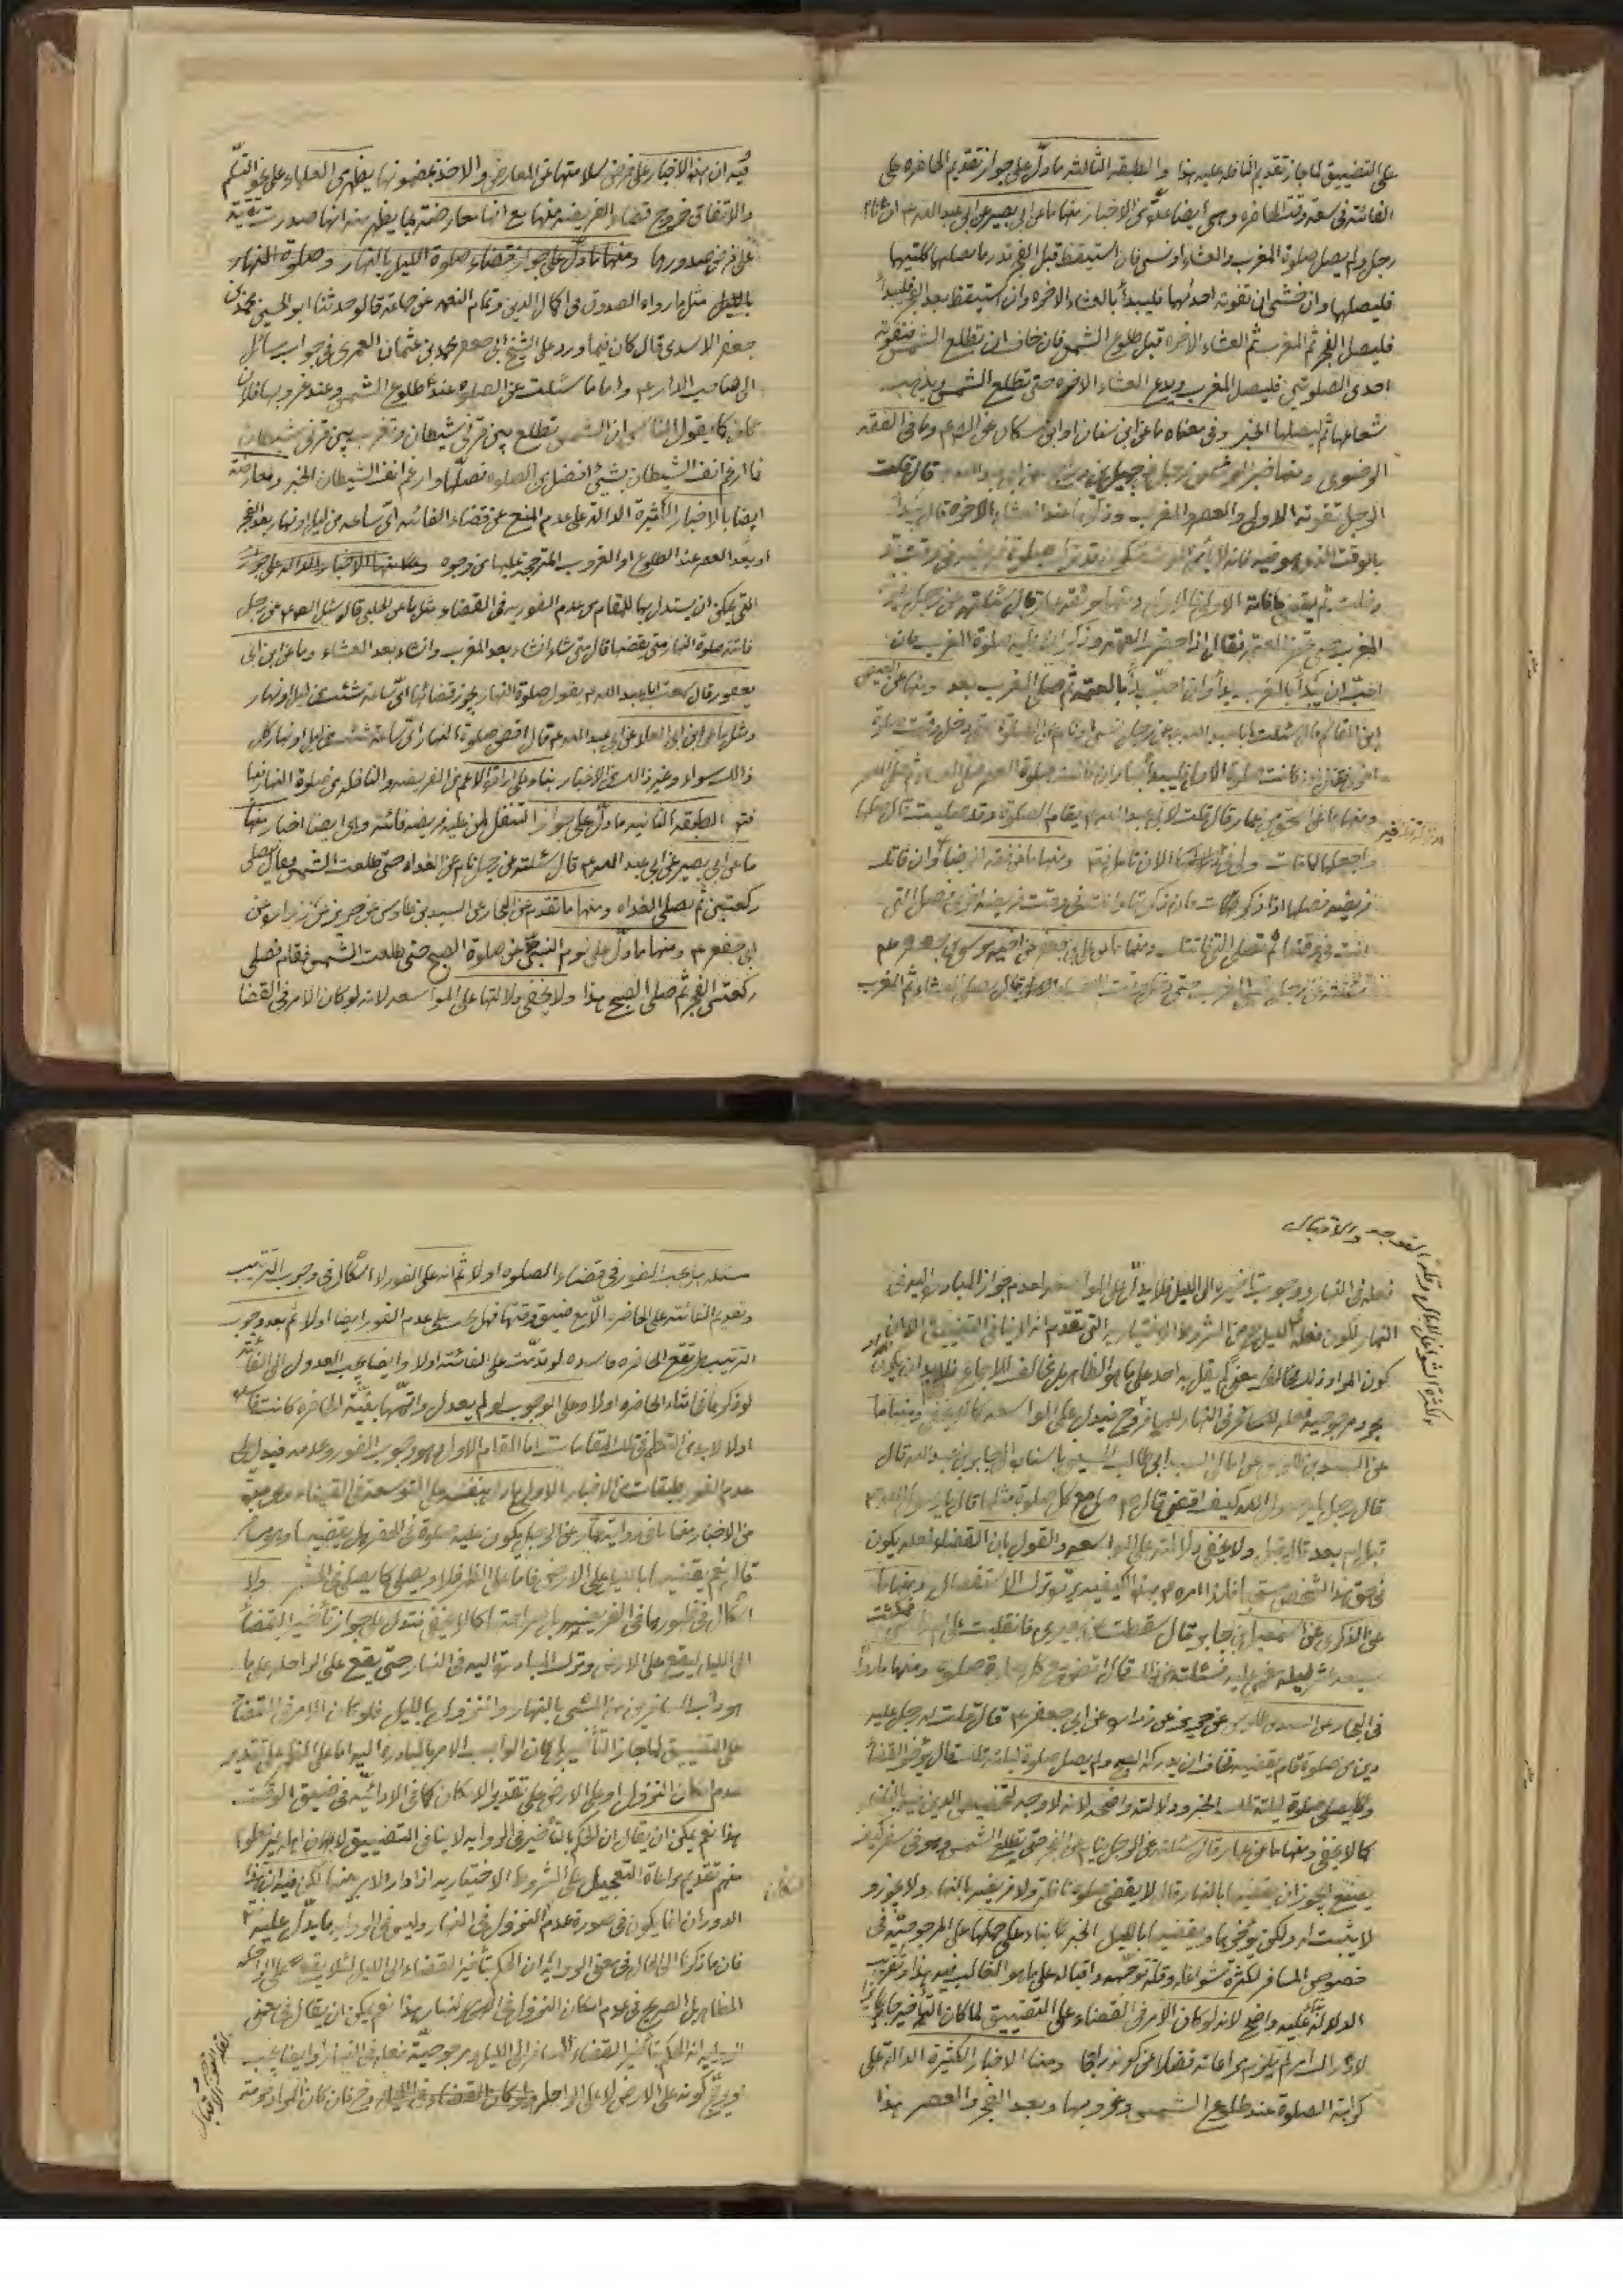 على التضييق لما جاز تقديم النافلة عليه هذا والطبقة الثالثة ما دل على جواز تقديم الحاضرة على
الفائتة في سعة وقت الحاضرة وهي ايضا عدة من الاخبار منها ما عن ابي بصير عن ابي عبد الله ع ان نام
رجل ولم يصل صلوة المغرب والعشاء او نسى فان استيقظ قبل الفجر قدر ما يصليهما كلتيهما
فليصلهما وان خشى ان تفوته احدٰيهما فليبدأ بالعشاء الاخرة وان استيقظ بعد الفجر فليبدأ
فليصل الفجر ثم المغرب ثم العشاء الاخرة قبل طلوع الشمس فان خاف ان تطلع الشمس فتفوته
احدى الصلوتين فليصل المغرب ويدع العشاء الاخرة حتى تطلع الشمس ويذهب
شعاعها ثم ليصلها الخبر وفي معناه ما عن ابن سنان او ابن مسكان عن الص ع وما في الفقه
الرضوي ومنها خبر جميل عن ابي عبد الله قال قلت
الرجل تفوته الاولى والعصر والمغرب وذكرها عند العشاء الاخرة قال يبدأ
بالوقت الذي هو فيه فانه لا يأمن الموت فيكون قد ترك صلوة فريضة في وقت قد
دخلت ثم يقضي ما فاته الاولى فالاولى ومنها موثقة عمار قال سئلته عن رجل
المغرب حتى العتمة فقال اذا حضرت العتمة وذكر ان عليه صلوة المغرب فان
احب ان يبدأ بالمغرب بدأ وان احب بدأ بالعتمة ثم صلى المغرب بعد ومنها عن العيص
ابن القاسم قال سئلت ابا عبد الله ع عن رجل نسى او نام عن الصلوة حتى دخل وقت صلوة
اخرى فقال ان كانت صلوة الاولى فليبدأ بها وان كانت صلوة العصر صلى العشاء ثم صلى العصر
ومنها ما عن اسحق بن عمار قال قلت لابي عبد الله ع يقام الصلوة وقد صليت قال صلها
واجعلها لما فات ومنها ما عن فقه الرضا وان فاتك
فريضة فصلها اذا ذكرت فان ذكرتها وانت في وقت فريضة اخرى فصل التي
انت في وقتها ثم تصلي التي فاتتك ومنها ما عن علي بن جعفر عن اخيه موسى بن جعفر ع
سئلته عن رجل نسى المغرب حتى دخل وقت العشاء الاخرة قال يصلي العشاء ثم المغرب
فيه ان هذه الاخبار على فرض سلامتها عن المعارض والاخذ بمضمونها يظهر من العلماء على نحو التسلم
والاتفاق خروج قضاء الفريضة منها مع انها معارضة بما يظهر منه انها صدرت تقية
على فرض صدورها ومنها ما دل على جواز قضاء صلوة الليل بالنهار وصلوة النهار
بالليل مثل ما رواه الصدوق في اكمال الدين وتمام النعمة عن جماعة قالوا حدثنا ابو الحسين محمد بن
جعفر الاسدي قال كان فيما ورد على الشيخ ابي جعفر محمد بن عثمان العمري في جواب مسائلي
الى صاحب الدار ع واما ما سئلت عن الصلوة عند طلوع الشمس وعند غروبها فلان
كان كما يقول الناس ان الشمس تطلع بين قرني شيطان وتغرب بين قرني شيطان
فما ارغم انف الشيطان بشيئ افضل من الصلوة فصلها وارغم انف الشيطان الخبر ومعارضة
ايضا بالاخبار الكثيرة الدالة على عدم المنع عن قضاء الفائتة اي ساعة من ليل او نهار بعد الفجر
او بعد العصر عند الطلوع او الغروب المترجحة عليها من وجوه ومنها الاخبار الدالة على جواز
التي يمكن ان يستدل بها للمقام من عدم الفورية في القضاء مثل ما عن الحلبي قال سئل الص ع عن رجل
فاتته صلوة النهار متى يقضيها قال متى شاء ان شاء بعد المغرب وان شاء بعد العشاء وما عن ابن ابي
يعفور قال سمعت ابا عبد الله ع يقول صلوة النهار يجوز قضائها اي ساعة شئت من ليل او نهار
ومثل ما عن ابن ابي العلاء عن ابي عبد الله ع قال اقض صلوة النهار اي ساعة شئت من ليل او نهار كل
ذلك سواء وغير ذلك من الاخبار بناء على ارادة الاعم من الفريضة والنافلة من صلوة النهار فيها
فتم الطبقة الثانية ما دل على جواز التنفل لمن عليه فريضة فائتة وهي ايضا اخبار منها
ما عن ابي بصير عن ابي عبد الله ع قال سئلته عن رجل نام عن الغداة حتى طلعت الشمس فقال يصلي
ركعتين ثم يصلي الغداة ومنها ما تقدم عن البحار عن السيد بن طاوس عن حريز عن زرارة عن
ابي جعفر ع ومنها ما دل على نوم النبي ص عن صلوة الصبح حتى طلعت الشمس فقام فصلى
ركعتي الفجر ثم صلى الصبح هذا ولا يخفى دلالتها على المواسعة لانه لو كان الامر في القضا
التوجه والاقبال
لكثرة الشواغل للبال وقلة
فعله في النهار ووجوب تاخيره الى الليل فلا يدل على المواسعة لعدم جواز المبادرة اليه في
النهار لكون فعله بالليل من الشروط الاختيارية التي تقدم انه لا ينافي التضييق
كون المراد ذلك مخالف معنى لم يقل به احد على ما هو الظاهر بل مخالف للاجماع فلابد ان يكون
مرجوحية فعله للمسافر في النهار للمسافر وح فيدل على المواسعة كما لا يخفى ومنها ما
عن السيد بن طاوس عن امالي السيد ابي طالب الحسيني باسناده الى جابر بن عبد الله قال
قال رجل يا رسول الله كيف اقضي قال ص صل مع كل صلوة مثلها قال يا رسول الله ص
قبل ام بعد قال قبل ولا يخفى دلالته على المواسعة والقول بان القضاء لعله يكون
عن الذكرى عن اسمعيل بن جابر قال سقطت عن بعيري فانقلبت على ام رأسي فمكثت
سبعة عشر ليلة مغمى علي فسئلته عن ذلك قال اقض مع كل صلوة صلوة ومنها ما ورد
في البحار عن السيد بن طاوس عن حريز عن زرارة عن ابي جعفر ع قال قلت له رجل عليه
دين من صلوة قام يقضيه فخاف ان يدركه الصبح ولم يصل صلوة ليلته تلك قال يؤخر القضاء
ويصلي صلوة ليلته تلك الخبر ودلالته واضحة لانه لا وجه لتخصيص الدين بغير الفرايض
كما لا يخفى ومنها ما عن عمار قال سئلته عن الرجل ينام عن الفجر حتى تطلع الشمس وهو في سفر كيف
يصنع ايجوز ان يقضيها بالنهار قال لا يقضى صلوة نافلة ولا فريضة بالنهار ولا يجوز و
لا يثبت له ولكن يؤخرها ويقضيها بالليل الخبر بناء على حملها على المرجوحية في
خصوص المسافر لكثرة شواغله وقلة توجهه واقباله على ما هو الغالب فيه هذا وتقريب
الدلالة عليه واضح لانه لو كان الامر في القضاء على التضييق لما كان التأخير جائزا
لادراك امر لم يلزم مراعاته فضلا عن كونه راجحا ومنها الاخبار الكثيرة الدالة على
كراهة الصلوة عند طلوع الشمس وغروبها وبعد الفجر والعصر هذا
مسئلة هل يجب الفور في قضاء الصلوة او لا ثم انه على الفور لا اشكال في وجوب الترتيب
وتقديم الفائتة على الحاضرة الا مع ضيق وقتها فهل يجب على عدم الفور ايضا او لا ثم بعد وجوب
الترتيب هل تقع الحاضرة فاسدة لو قدمت على الفائتة او لا وايضا يجب العدول الى الفائتة
لو ذكرها في اثناء الحاضرة او لا وعلى الوجوب لو لم يعدل واتمها بنية الحاضرة كانت فاسدة
او لا لابد من التكلم في تلك المقامات اما المقام الاول وهو وجوب الفور وعدمه فيدل على
عدم الفور طبقات من الاخبار الاولى ما دل بنفسه على التوسعة في القضاء وهي عدة
من الاخبار منها ما في رواية عمار عن الرجل يكون عليه صلوة في الحضر هل يقضيها وهو مسافر
قال نعم يقضيها بالليل على الارض فاما على الظهر فلا ويصلي كما يصلي في الحضر ولا
اشكال في ظهورها في الفريضة بل صراحتها كما لا يخفى فتدل على جواز تأخير القضاء
الى الليل ليقع على الارض وترك المبادرة اليه في النهار حتى يقع على الراحلة على ما
هو دأب المسافرين من المشي بالنهار والنزول بالليل فلو كان الامر في القضاء
على التضييق لما جاز التأخير بل كان الواجب الامر بالمبادرة اليه اما على الظهر على تقدير
عدم امكان النزول او على الارض على تقدير الامكان كما في الادائية في ضيق الوقت
هذا نعم يمكن ان يقال ان الحكم بالتأخير في الرواية لا ينافي التضييق
منهم تقديم مراعاة التعجيل على الشروط الاختيارية اذا دار الامر بينهما لكن فيه ان هذا
الدوران انما يكون في صورة عدم النزول في النهار وليس في الرواية ما يدل عليه
فان ما ذكرنا الى الحال في معنى الرواية ان الحكم بتأخير القضاء الى الليل لئلا يقع على الراحلة
الظاهر بل الصريح في عدم امكان النزول في النهار هذا نعم يمكن ان يقال في معنى
الرواية انه الحكم بتأخير القضاء للمسافر الى الليل ومرجوحية فعله في النهار وايضا يجب
كونه على الارض لا على الراحلة وح فان كان المراد حرمة